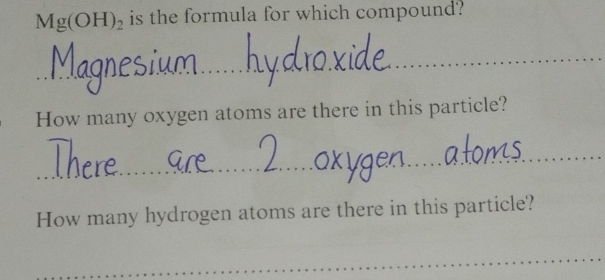 Mg(OH)₂ is the formula for which compound?
Magnesium hydroxide
How many oxygen atoms are there in this particle?
There are 2 oxygen atoms
How many hydrogen atoms are there in this particle?